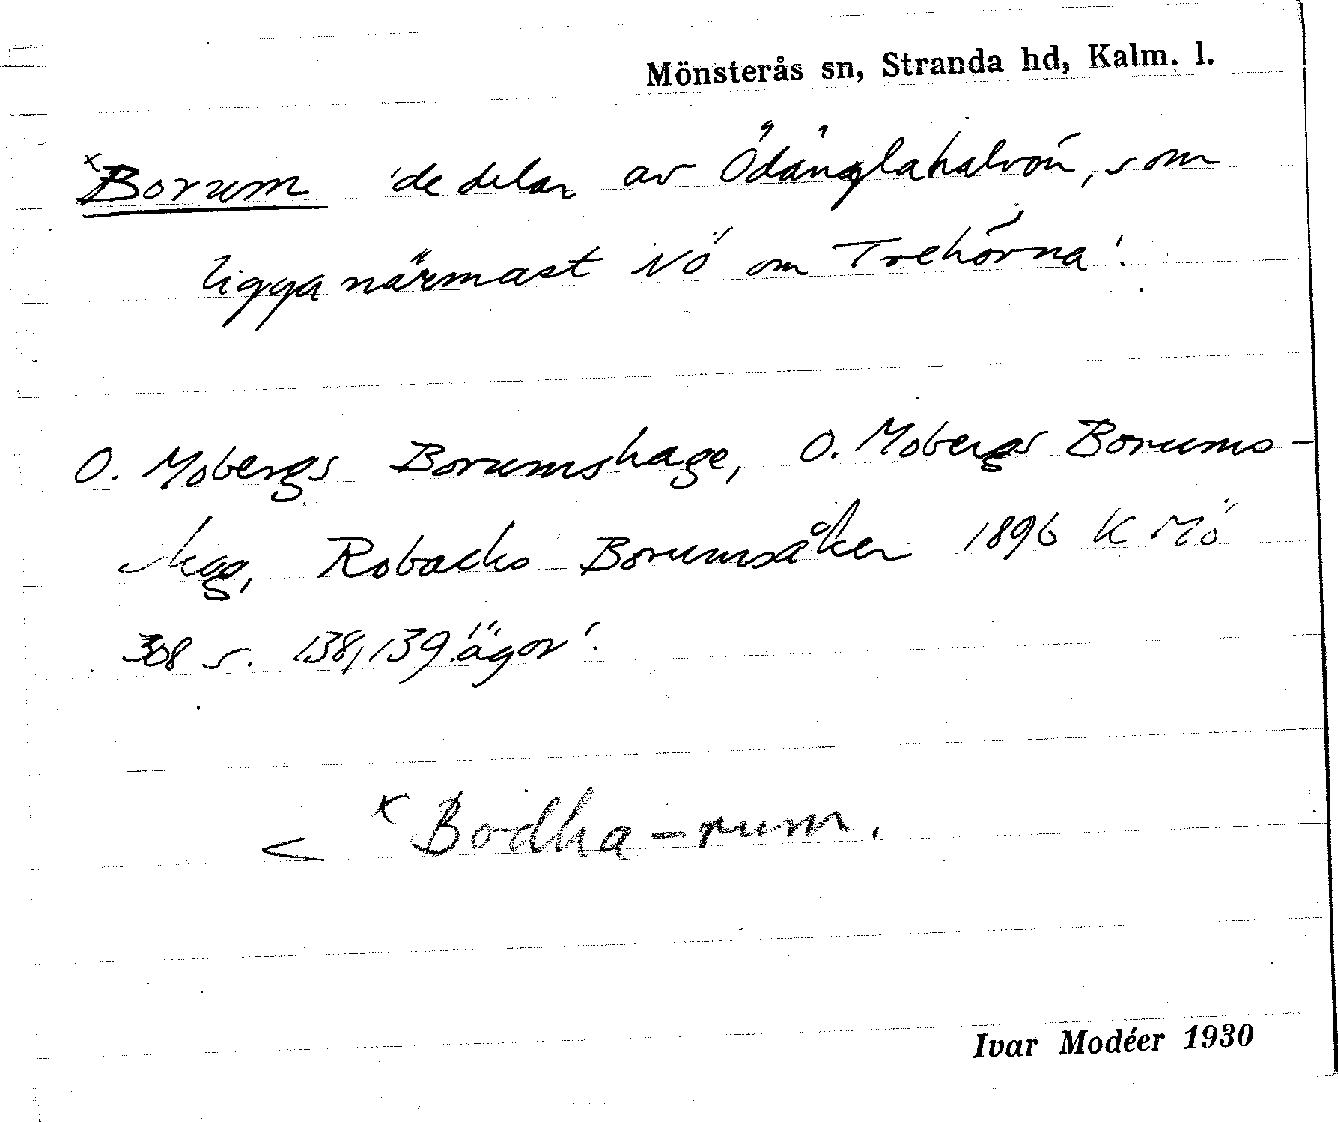 Mönsterås sn, Stranda hd, Kalm. l.
×Borum 'de delar av Ödänglahalvön, som
ligga närmast NÖ om Trehörna'.
O. Mobergs Borumshage, O. Mobergs Borums-
skog, Robacks Borumsåker 1896 K Mö
308 s. 138, 139 'ägor'.
< ×Bodha-rum.
Ivar Modéer 1930